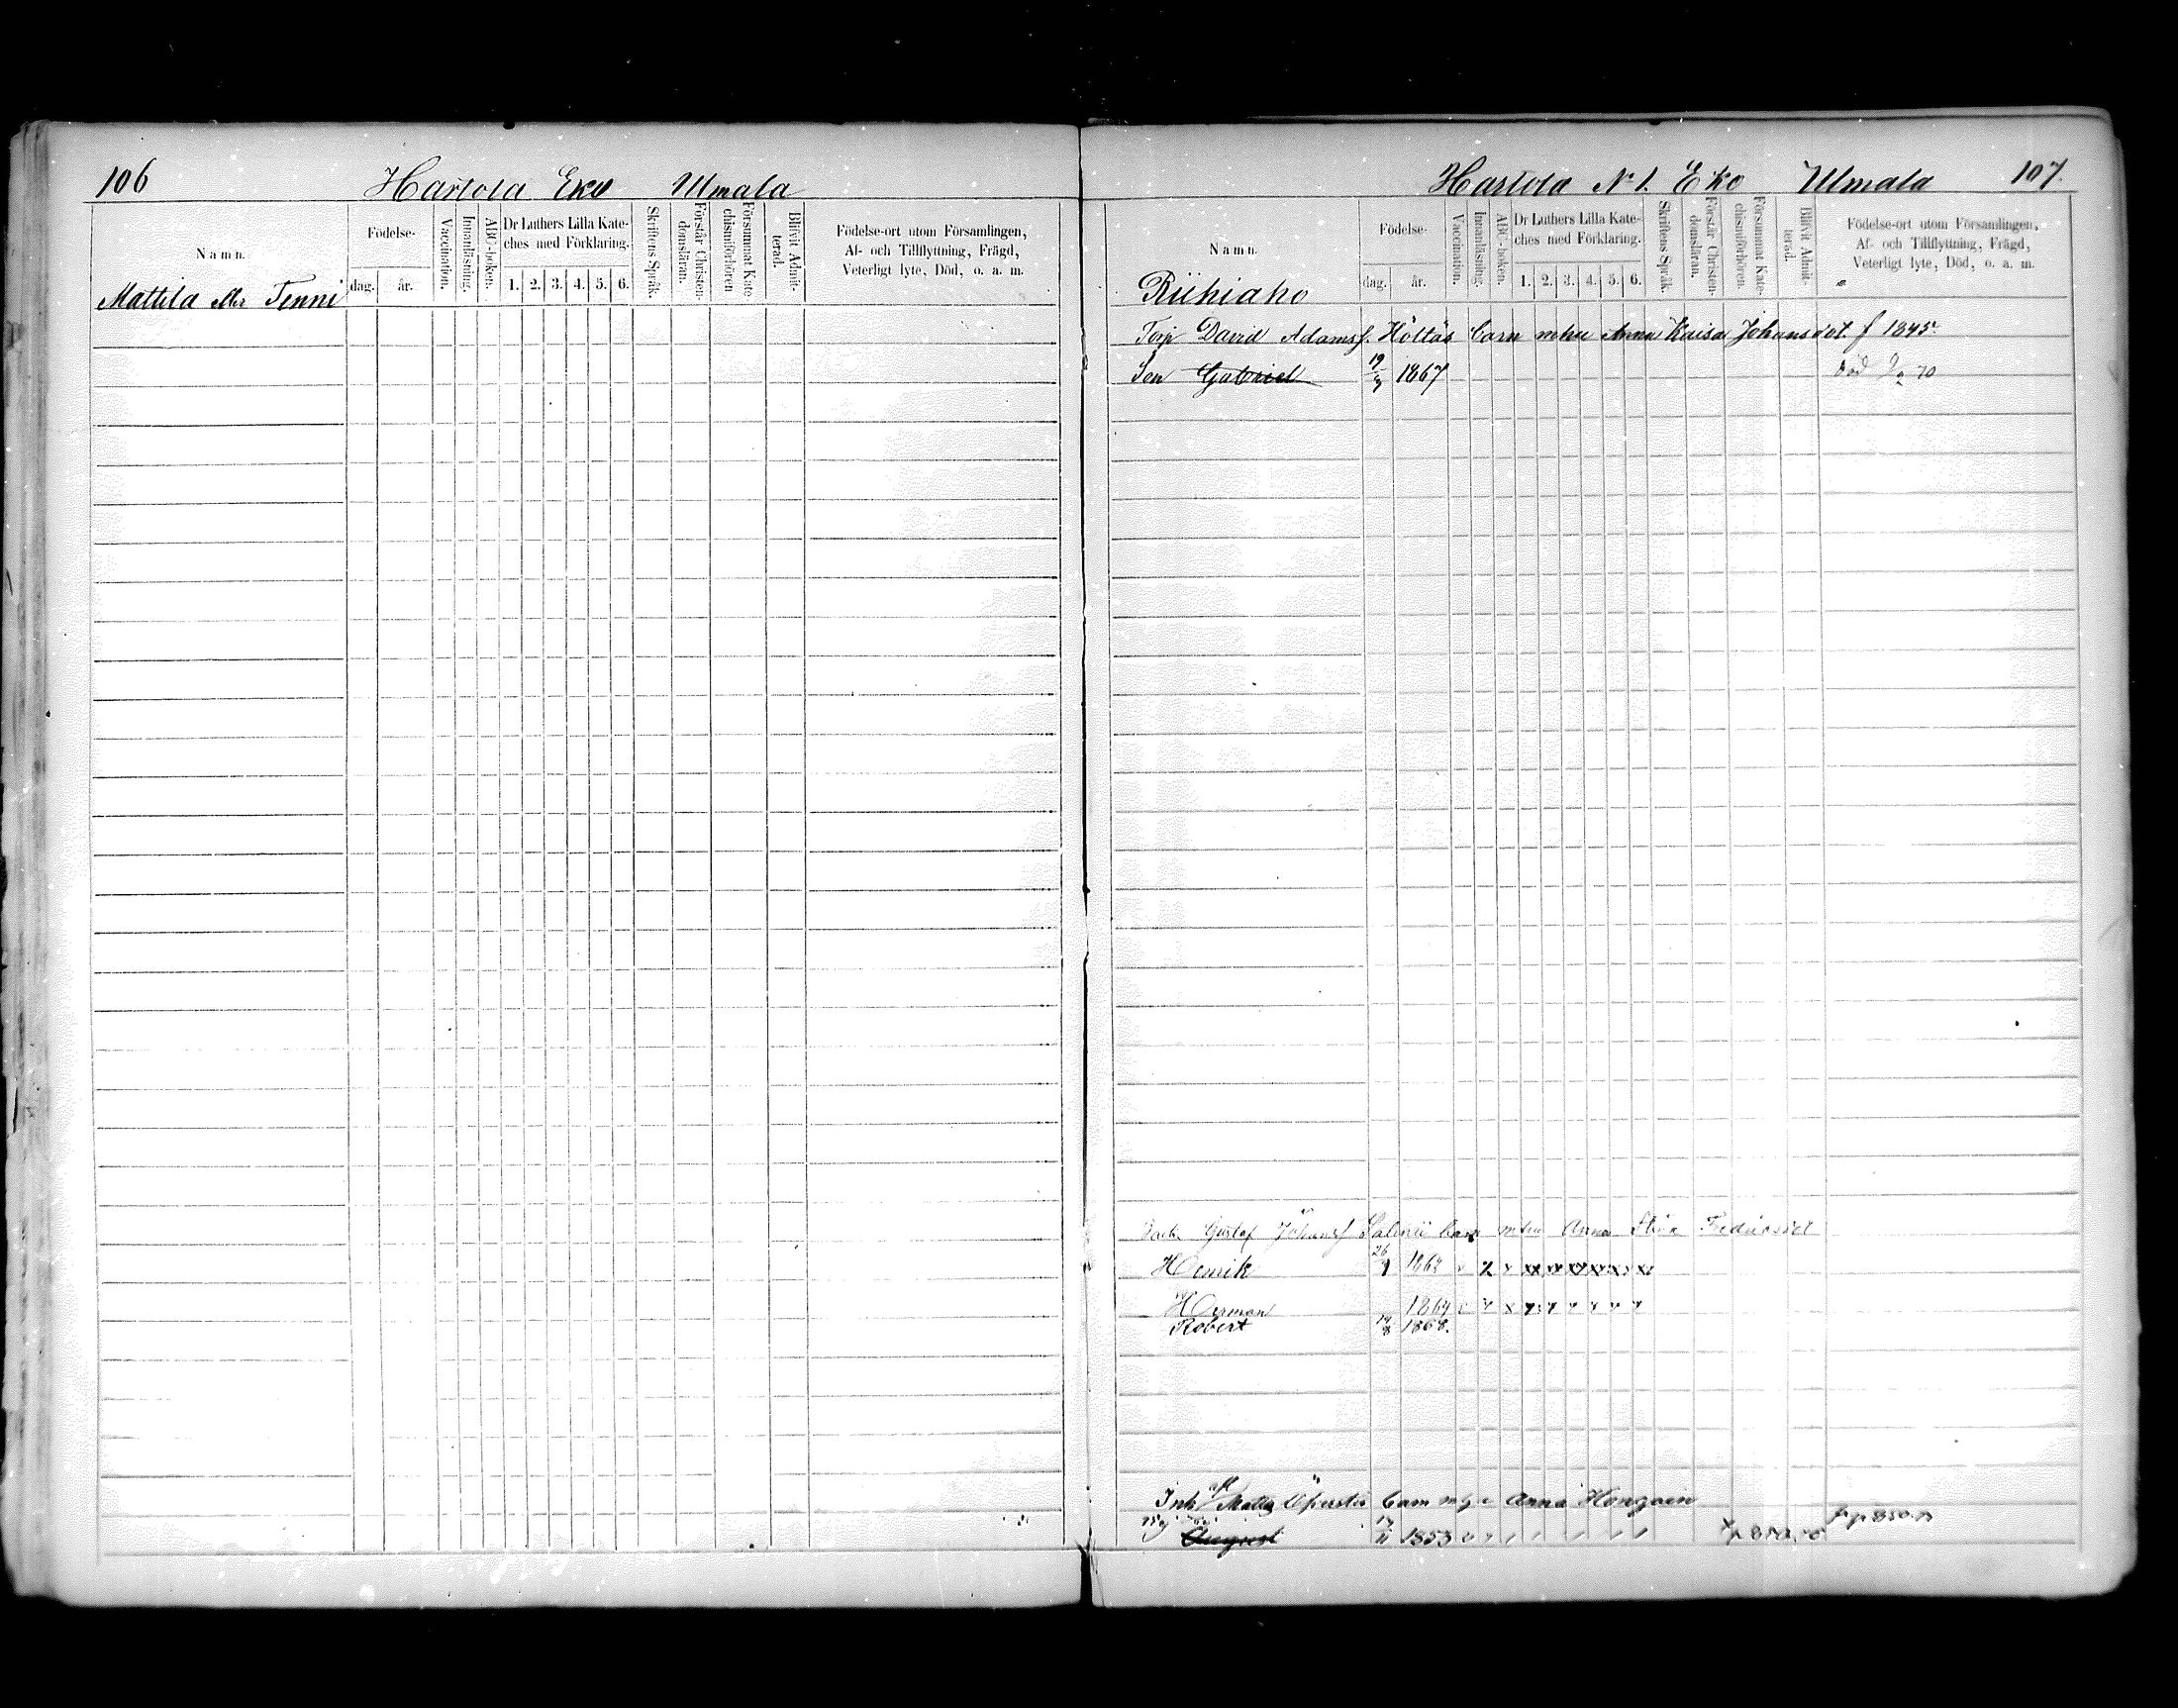 106 Hartola Eko Ulmala
Namn.
Födelse-
dag. år.
Vaccination.
Innanläsning.
ABC-boken.
Dr Luthers Lilla Kate-
ches med Förklaring.
1. 2. 3. 4. 5. 6.
Skriftens Språk.
Förstår Christen-
domsläran.
Försummat Kate
chismiförhören
Blifvit Admit-
terad.
Födelse-ort utom Församlingen,
Af- och Tillflyttning, Frägd,
Veterligt lyte, Död, o. a. m.
Mattila eller Tenni
Hartola No 1. Eko Ulmala 107.
Namn.
Födelse-
dag. år.
Vaccination.
Innanläsning.
ABC-boken.
Dr Luthers Lilla Kate-
ches med Förklaring.
1. 2. 3. 4. 5. 6.
Skriftens Språk.
Förstår Christen-
domsläran.
Försummat Kate-
chismiförhören.
Blifvit Admit-
terad.
Födelse-ort utom Församlingen,
Af- och Tillflyttning, Frägd,
Veterligt lyte, Död, o. a. m.
Riihiaho
Torp David Adamsf. Höltäs barn m hu Anna Kaisa Johansdot. f 1845
Son Gabriel 1867 död 70
Gustaf Johansf barn m hu Anna Stina Fredriksdot
Henrik 26
Herman 1864
Robert 1868.
Inh Matts barn Anna Hongoen
August 1853